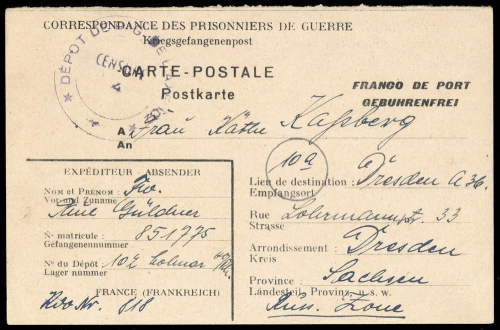 CORRESPONDANCE DES PRISONNIERS DE GUERRE
Kriegsgefangenenpost
DÉPOT DE
CENSURE
4
CARTE-POSTALE
Postkarte
FRANCO DE PORT
GEBUHRENFREI
A Frau Käthe Kaßberg
An
10a
EXPÉDITEUR - ABSENDER
NOM et PRÉNOM :
Vor und Zuname
Güldner
N° matricule : 851775
Gefangenennummer
N° du Dépôt 102 Colmar
Lager nummer
FRANCE (FRANKREICH)
Kdo Nr. 818
Lieu de destination : Dresden A 36.
Empfangsort
Rue Lohrmannstr. 33
Strasse
Arrondissement : Dresden
Kreis
Province : Sachsen
Landesteil, Provinz, u. s. w.
Russ. Zone